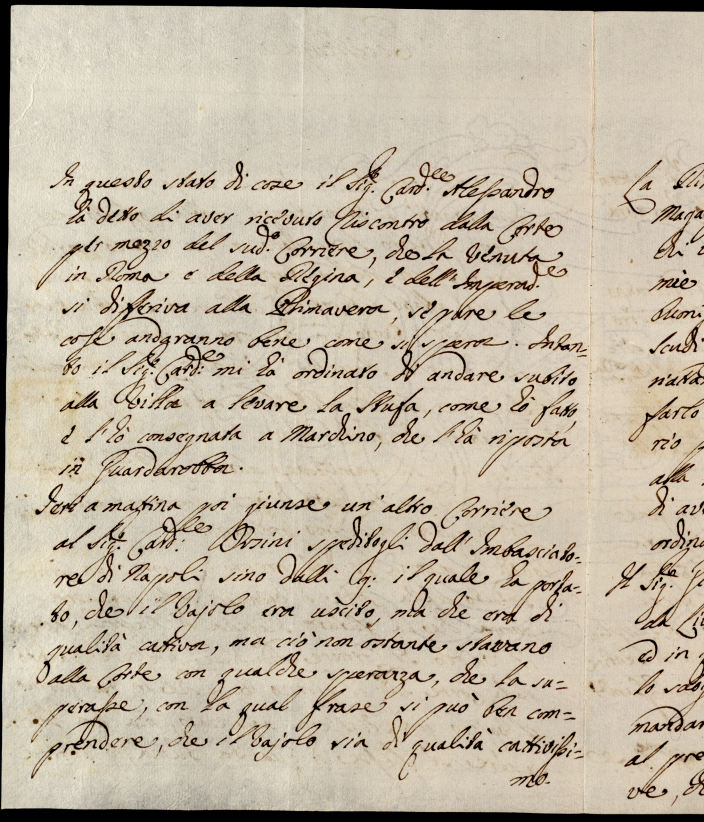 In questo stato di cose il Sig.e Card.le Alessandro
hà detto di aver ricevuto riscontro dalla Corte
per mezzo del sud.o Corriere, che la venuta
in Roma e della Regina, e dell'Imperad.e
si differiva alla Primavera, se pure le
cose andaranno bene come si spera. Intan=
to il Sig.e Card.le mi hà ordinato di andare subito
alla Villa a levare la stufa, come hò fatto,
e l'hò consegnata a Marchino, che l'hà riposta
in Guardarobba.
Jeri a mattina poi giunse un'altro Corriere
al Sig.e Card.le Orsini speditogli dall'Imbasciato=
re di Napoli sino dalli 9: il quale hà porta=
to, che il Vajolo era uscito, ma che era di
qualità cattiva, ma ciò non ostante stavano
alla Corte con qualche speranza, che la su=
perasse, con la qual frase si può ben com=
prendere, che il Vajolo sia di qualità cattivissi=
mo.
La
Maga
che
mie
Scudi
farlo
rio
alla
di av
ordina
Il Sig.e
da
ed in
lo
mandar
al pre
ve, ch